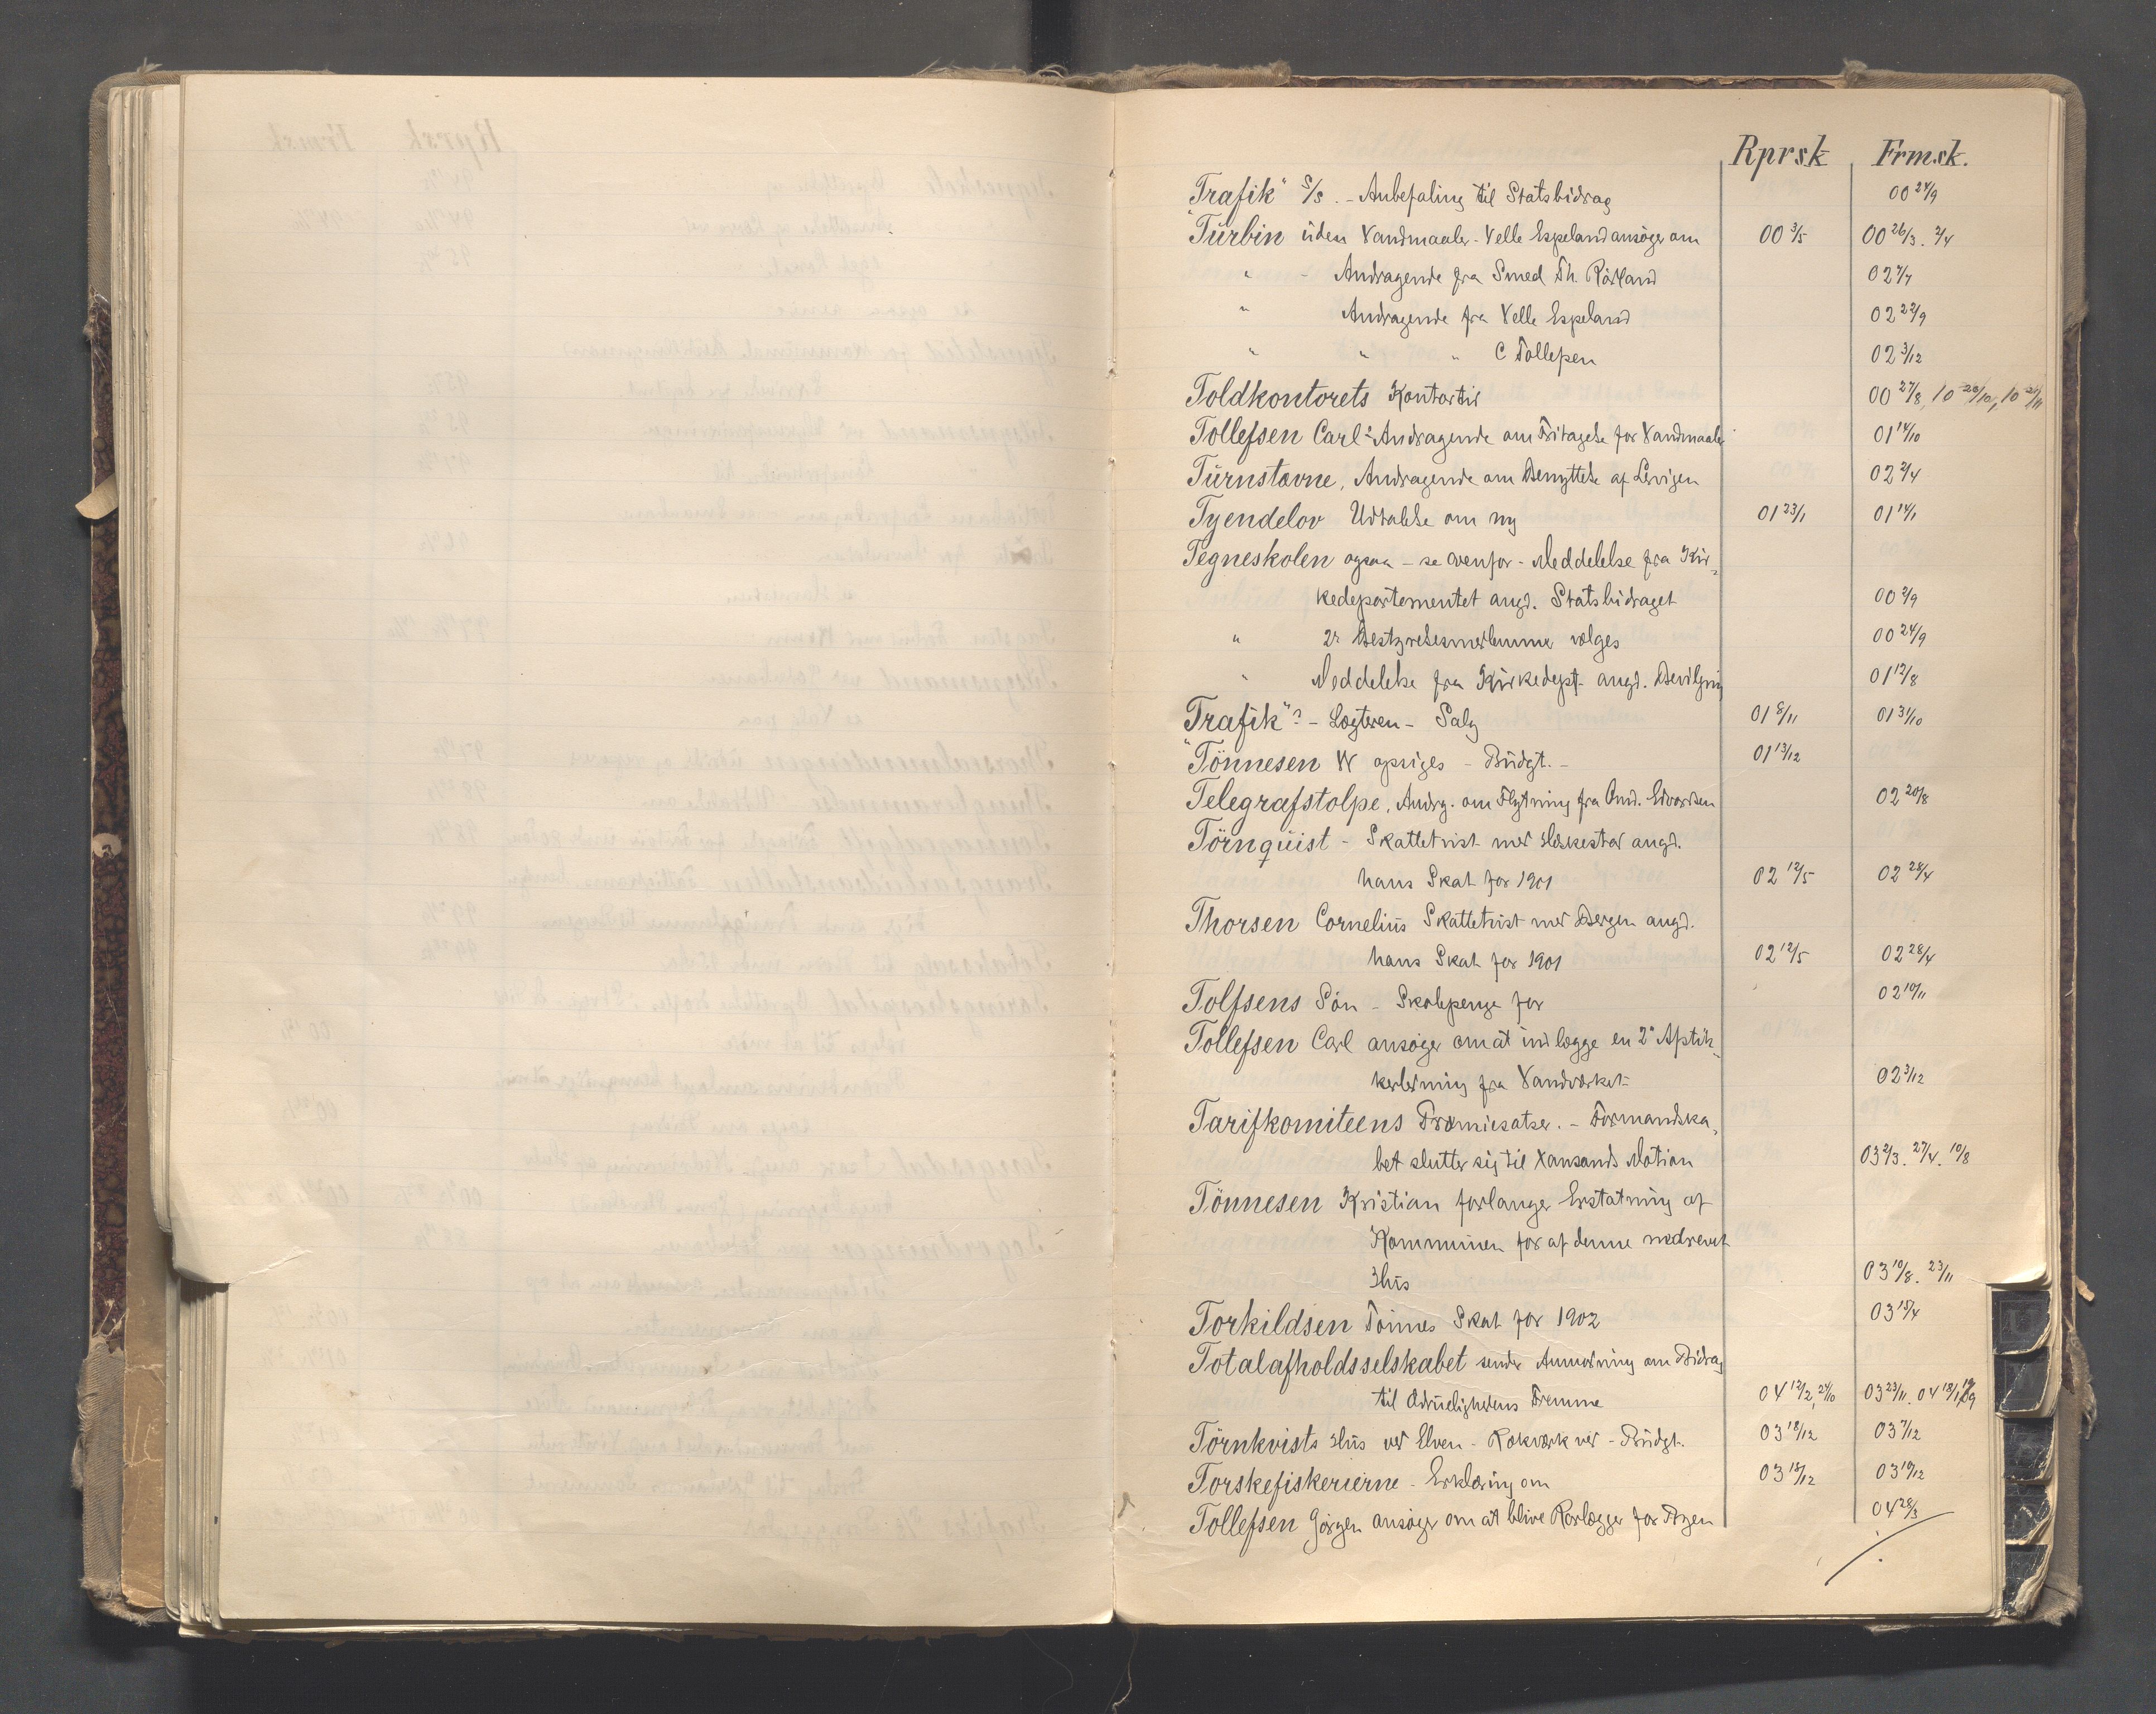 Rprsk Frmsk.
"Trafik" S/S. - Anbefaling til Statsbidrag 00 24/9
Türbin üden Vandmaaler - Velle Espeland ansøger om 00 3/5 00 26/3. 2/4
" - Andragende fra Smed Th. Rørland 02 7/7
" Andragende fra Velle Espeland 02 22/9
" " " C Tollefsen 02 3/12
Toldkontorets Kontortid 00 27/8, 10 28/10, 10 21/11
Tollefsen Carl: Andragende om Fritagelse for Vandmaaler 01 14/10
Türnstævne, Andragende om Benyttelse af 02 2/4
Tyendelov Udtalelse om ny 01 23/1 01 14/1
Tegneskolen ogsaa - se ovenfor - Meddelelse fra Kir-
kedepartementet angd. Statsbidraget 00 2/9
" 2r Bestyrelsesmedlemmer vælges 00 24/9
" Meddelelse fra Kirkedept. angd. Bevilgning 01 12/8
"Trafik"? - Lægteren - Salg 01 8/11 01 31/10
Tönnesen W opsiges - Büdgt. - 01 13/12
Telegrafstolpe, Andrg. om Flytning fra Ond. Edvardsen 02 20/8
Törnqüist - Skattetvist med Heskestad angd.
hans Skat for 1901 02 12/5 02 28/4
Thorsen Cornelius Skattetvist med Bergen angd.
hans Skat for 1901 02 12/5 02 28/4
Tolfsens Søn - Skolepenge for 02 10/11
Tollefsen Carl ansøger om at indlægge en 2"
fra Vandværket 02 3/12
Tarifkomiteens Præmiesatser. - Formandska-
bet slutter sig til Xansands Motion 03 2/3. 27/4. 10/8
Tönnesen Kristian forlanger Erstatning af
Kommunen for af denne nedrevet
Hüs 03 10/8. 23/11
Torkildsen Tönnes Skat for 1902 03 15/4
Totalafholdsselskabet sender Anmodning om Bidrag
til Ædrüelighedens Fremme 04 12/2, 24/10 03 23/11. 04 18/1, 19/9
Törnkvists Hüs ved Elven - Rækværk ved - Büdgt. 03 18/12 03 7/12
Torskefiskerierne - Erklæring om 03 18/12 03 10/12
Tollefsen Jörgen ansøger om at blive Rørlægger for Byen 04 28/3